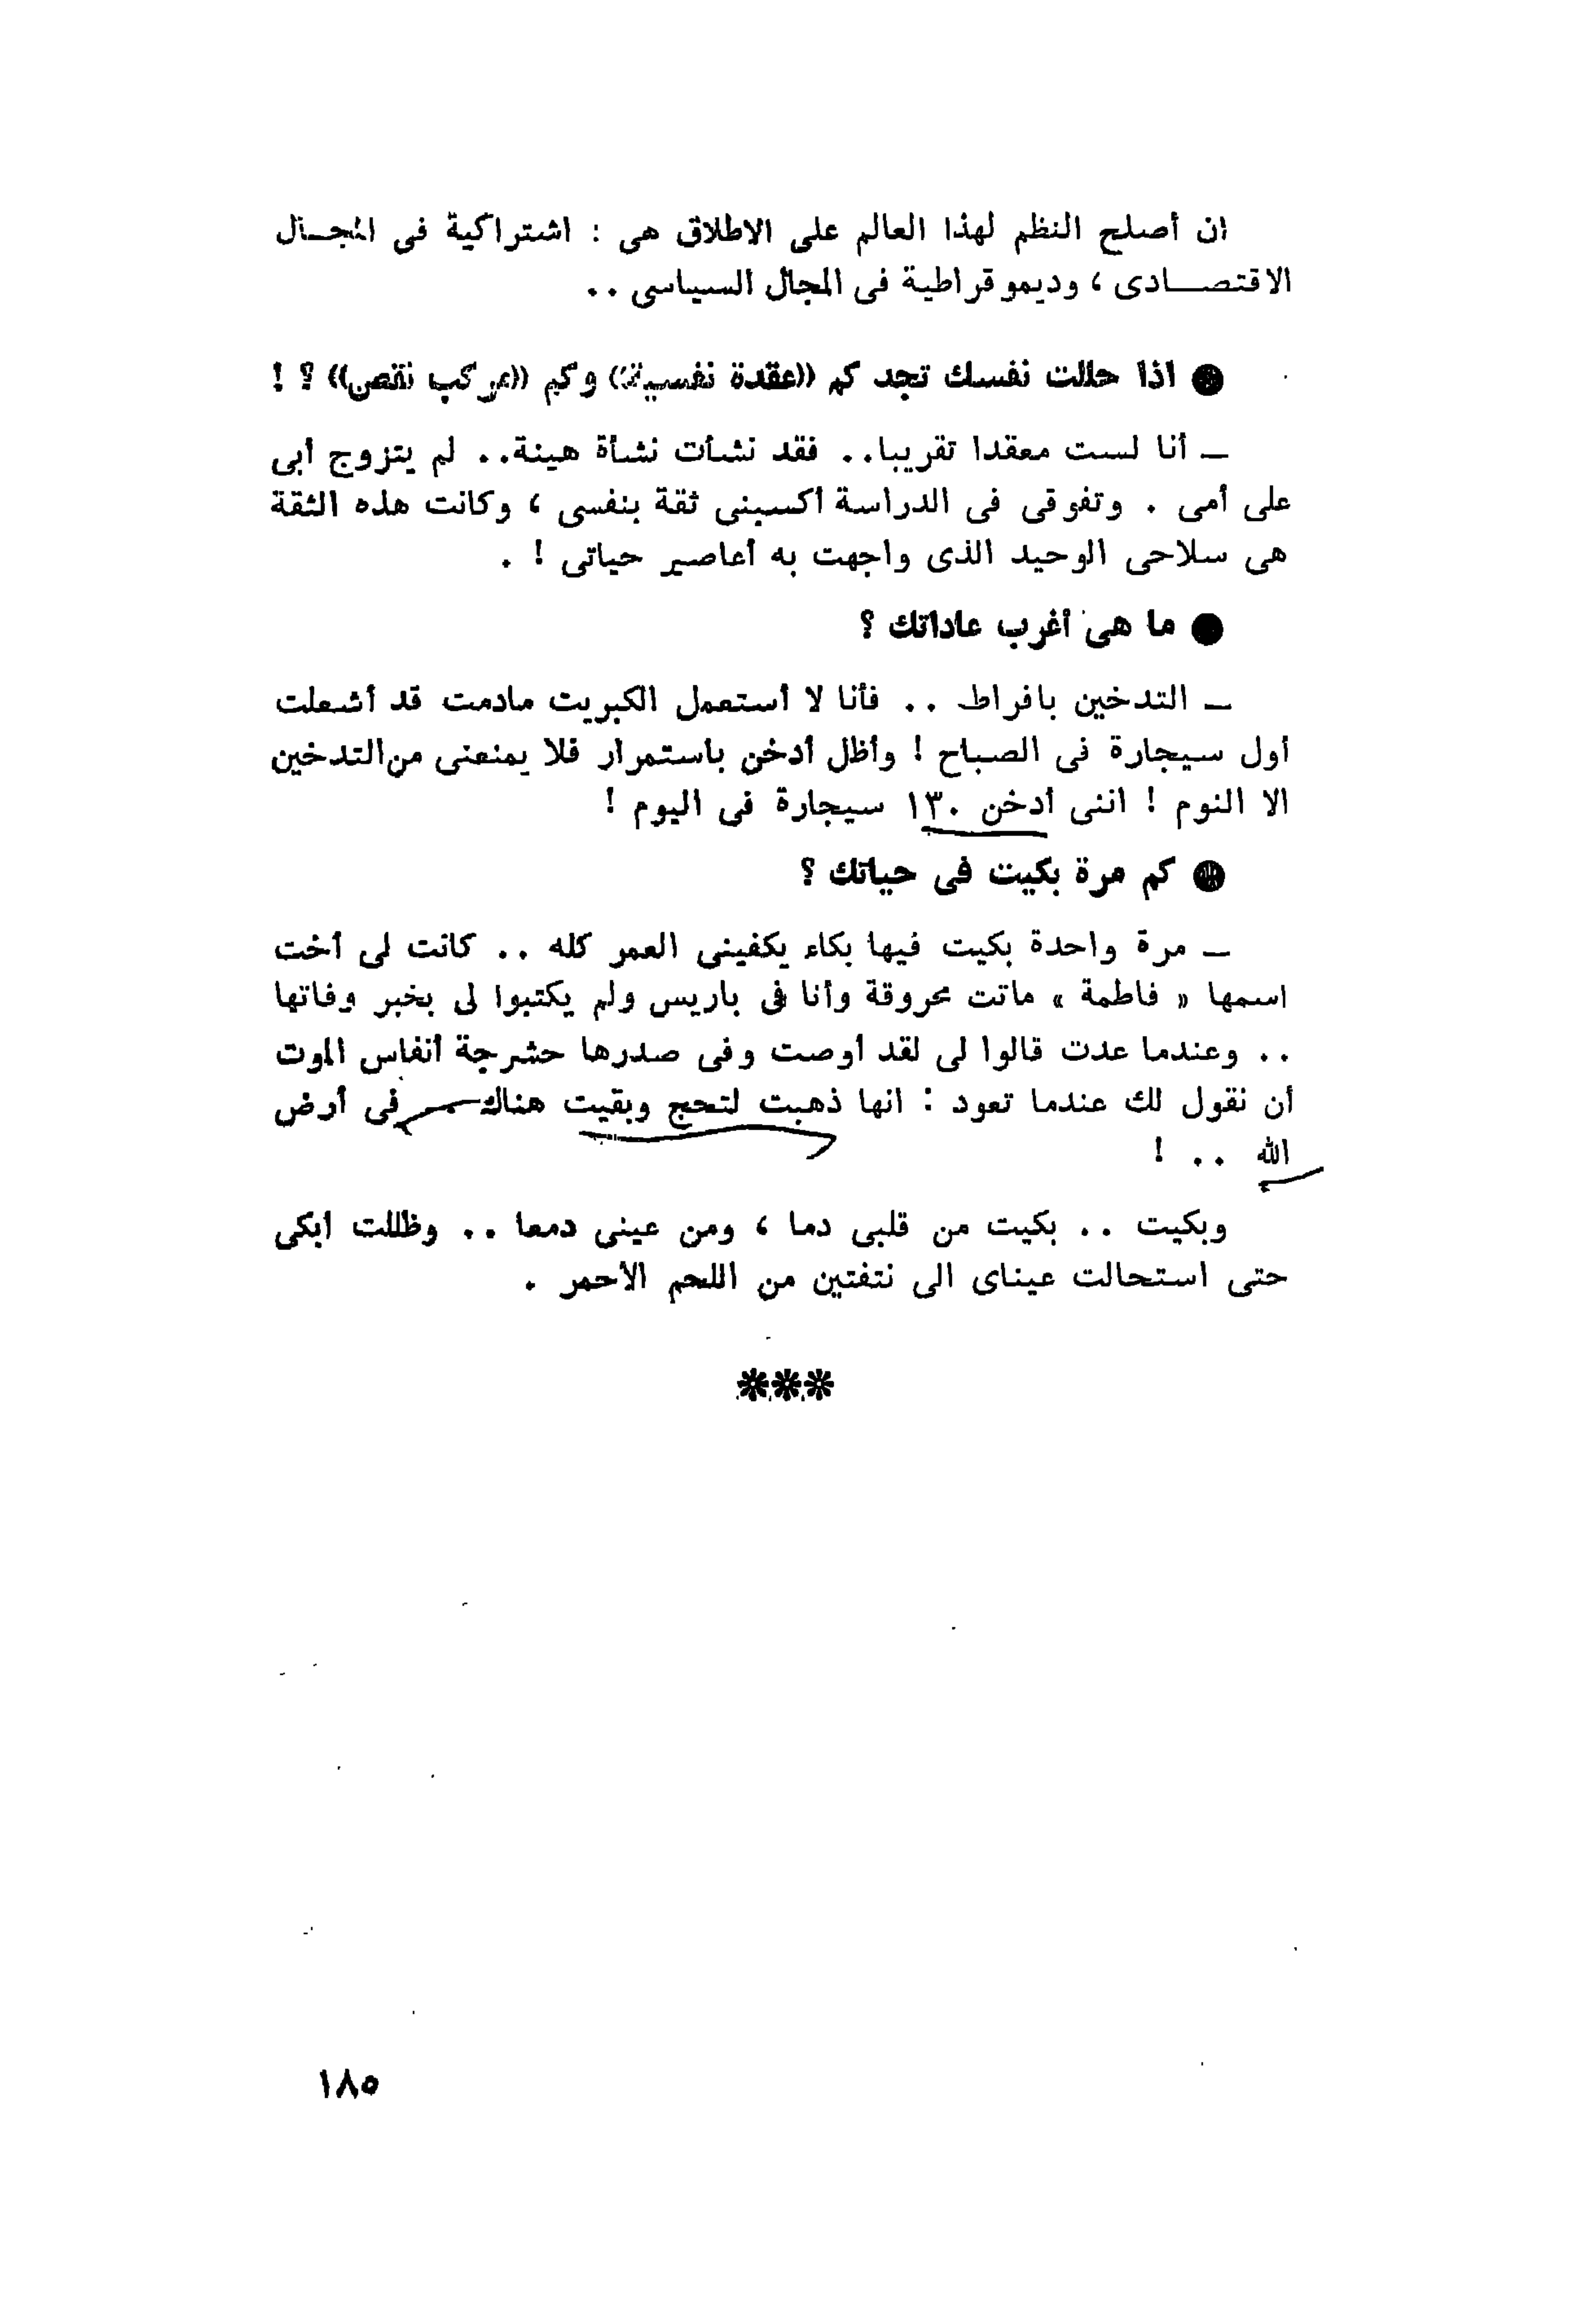 ان أصلح النظم لهذا العالم على الاطلاق هى : اشتراكية فى المجـال
الاقتصـــادى ، وديموقراطية فى المجال السياسى ..
● اذا حللت نفسك تجد كم ((عقدة نفسية)) وكم ((مركب نقص)) ؟ !
ــ أنا لست معقدا تقريبا.. فقد نشأت نشأة هينة.. لم يتزوج أبى
على أمى . وتفوقى فى الدراسة أكسبنى ثقة بنفسى ، وكانت هذه الثقة
هى سلاحى الوحيد الذى واجهت به أعاصير حياتى ! .
● ما هى أغرب عاداتك ؟
ــ التدخين بافراط .. فأنا لا أستعمل الكبريت مادمت قد أشعلت
أول سيجارة فى الصباح ! وأظل أدخن باستمرار فلا يمنعنى من التدخين
الا النوم ! اننى أدخن ١٣٠ سيجارة فى اليوم !
● كم مرة بكيت فى حياتك ؟
ــ مرة واحدة بكيت فيها بكاء يكفينى العمر كله .. كانت لى أخت
اسمها « فاطمة » ماتت محروقة وأنا فى باريس ولم يكتبوا لى بخبر وفاتها
.. وعندما عدت قالوا لى لقد أوصت وفى صدرها حشرجة أنفاس الموت
أن نقول لك عندما تعود : انها ذهبت لتحج وبقيت هناك فى أرض
الله .. !
وبكيت .. بكيت من قلبى دما ، ومن عينى دمعا .. وظللت ابكى
حتى استحالت عيناى الى نتفتين من اللحم الاحمر .
***
١٨٥